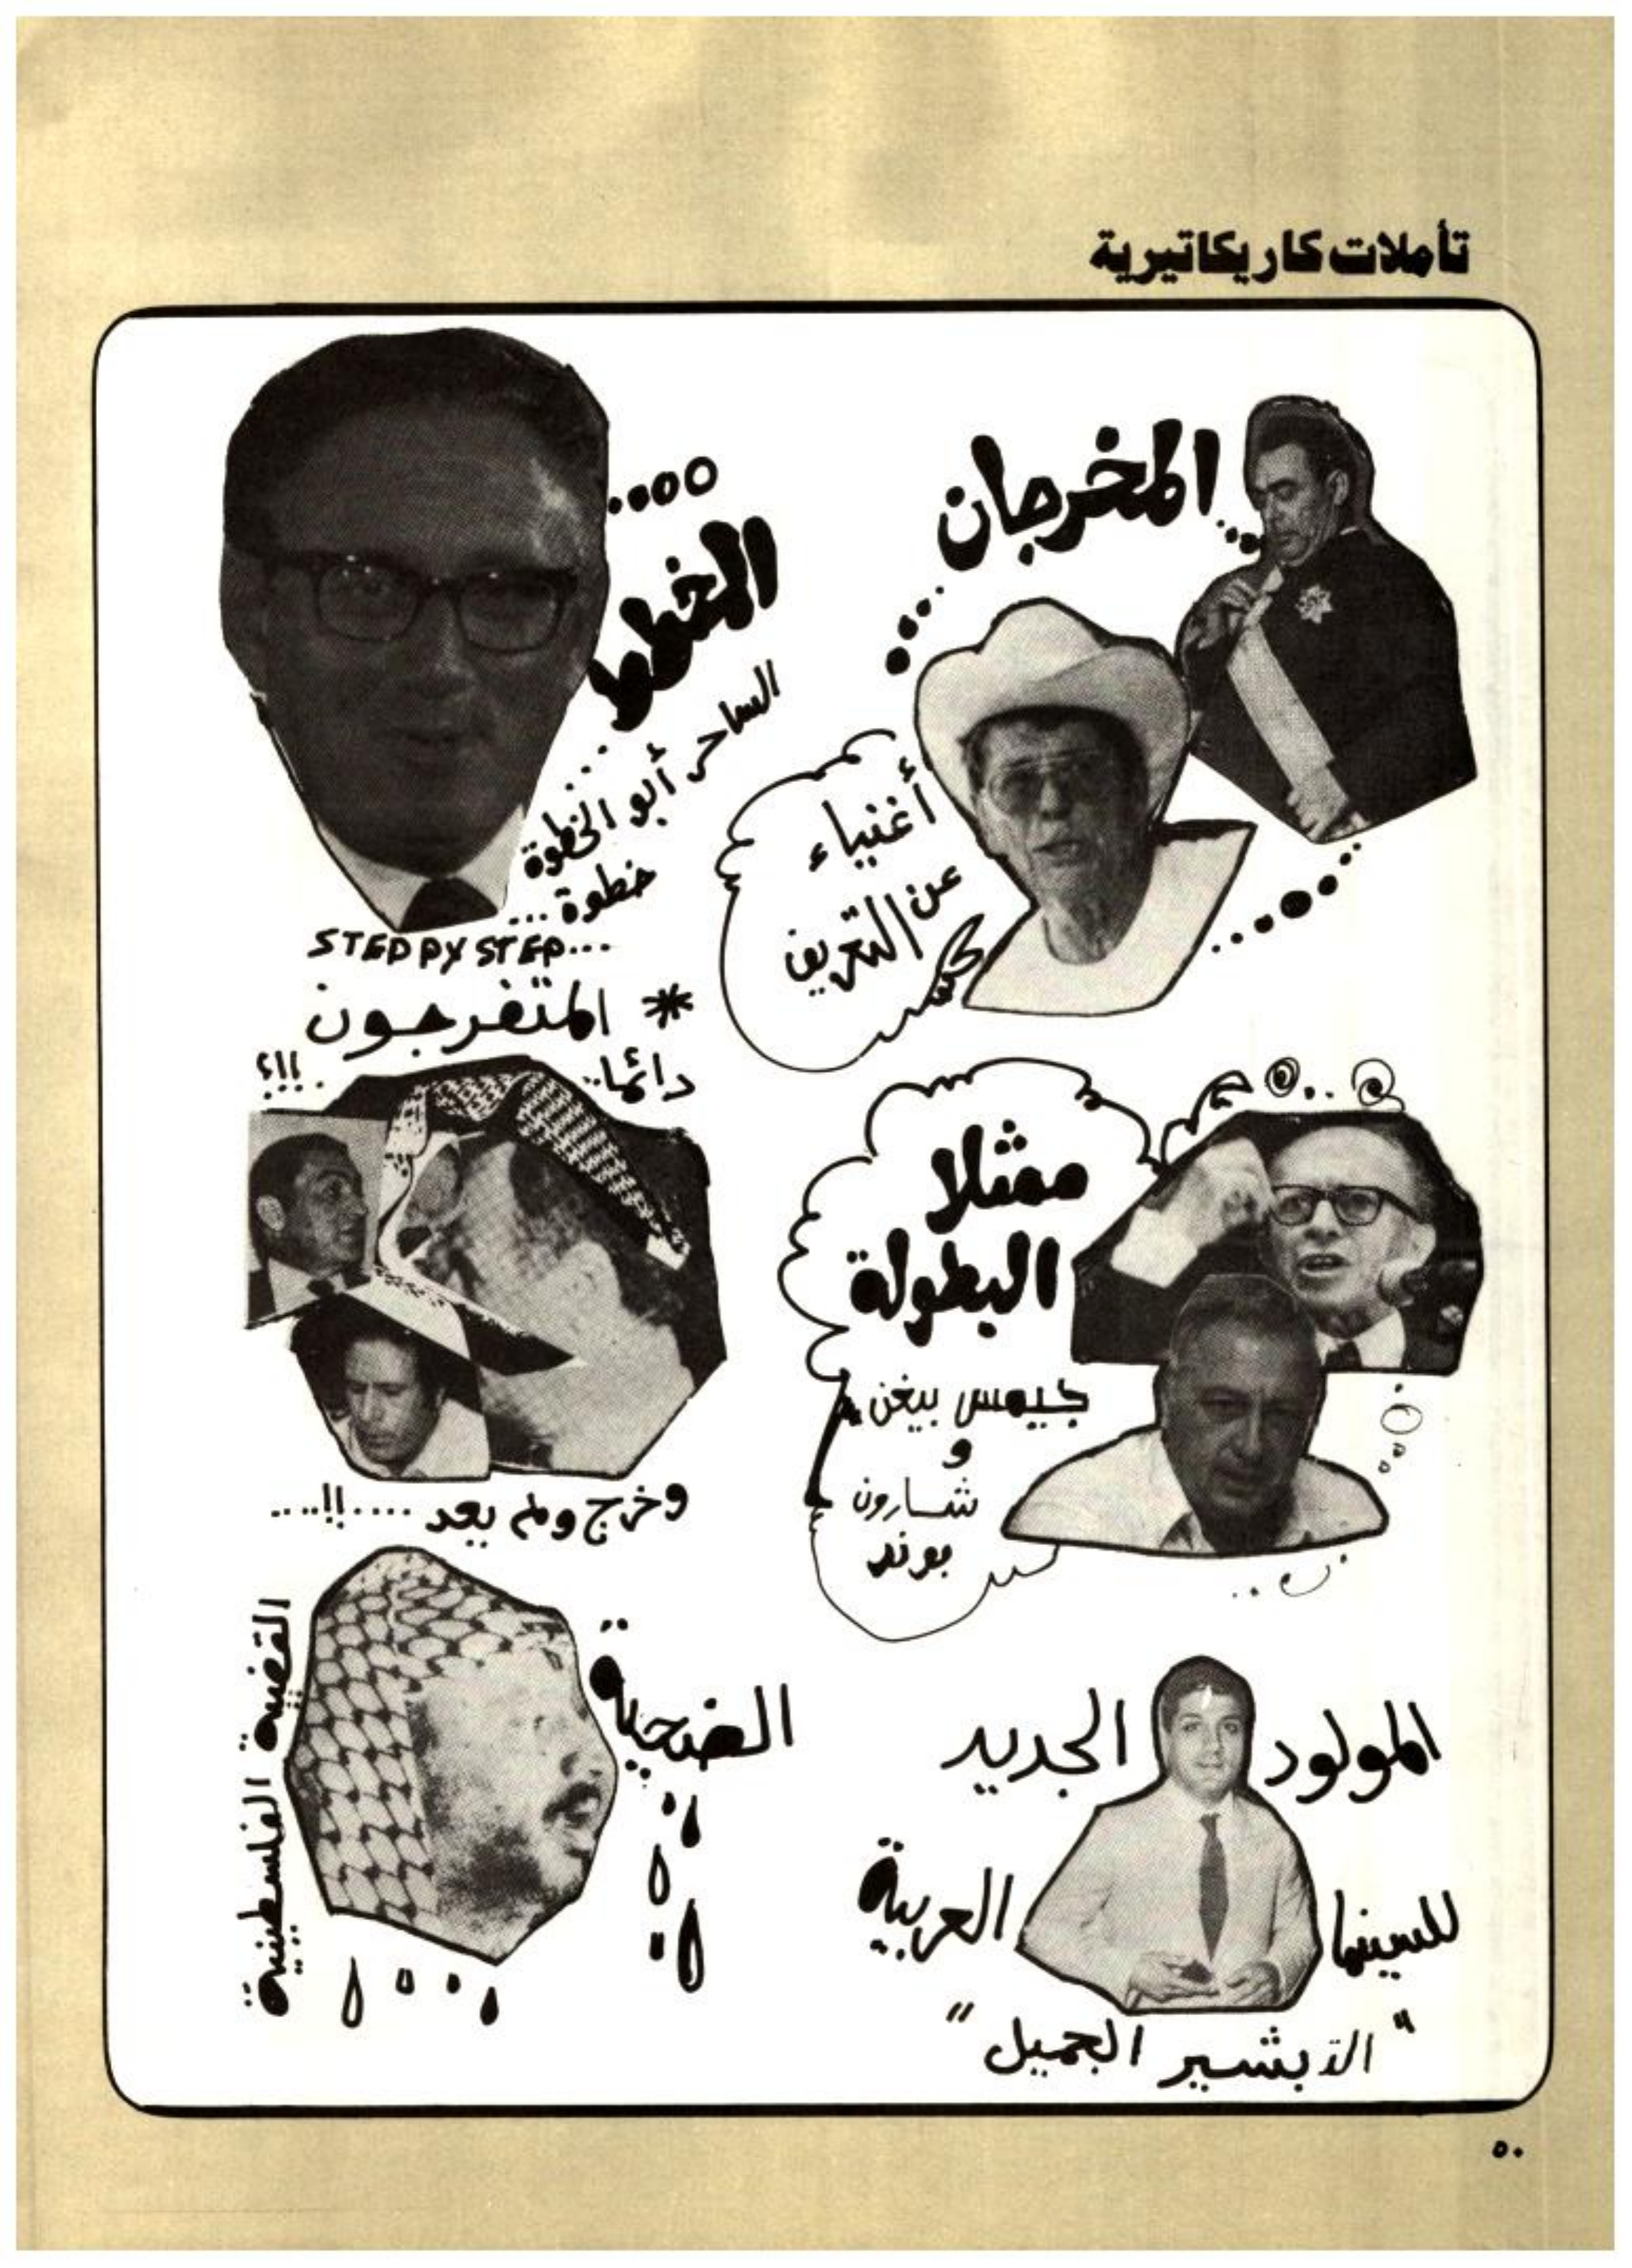 تأملات كاريكاتيرية
المخرجان
أغنياء
عن
التعريف
المخطط
الساحر أبو الخطوة
خطوة...
STEP PY STEP...
* المتفرجون
دائما..
!!؟
ممثلا
البطولة
جيمس بيغن
و
شارون
بوند
وخرج ولم يعد ....!!...
الضحية
القضية الفلسطينية
المولود الجديد
للسينما العربية
"التبشير الجميل"
٥٠